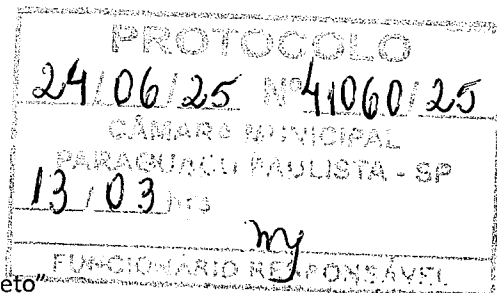 PROTOCOLO
24/06/25 Nº 41060/25
CÂMARA MUNICIPAL
PARAGUAÇU PAULISTA - SP
13/03 hrs
FUNCIONÁRIO RESPONSÁVEL
eto"